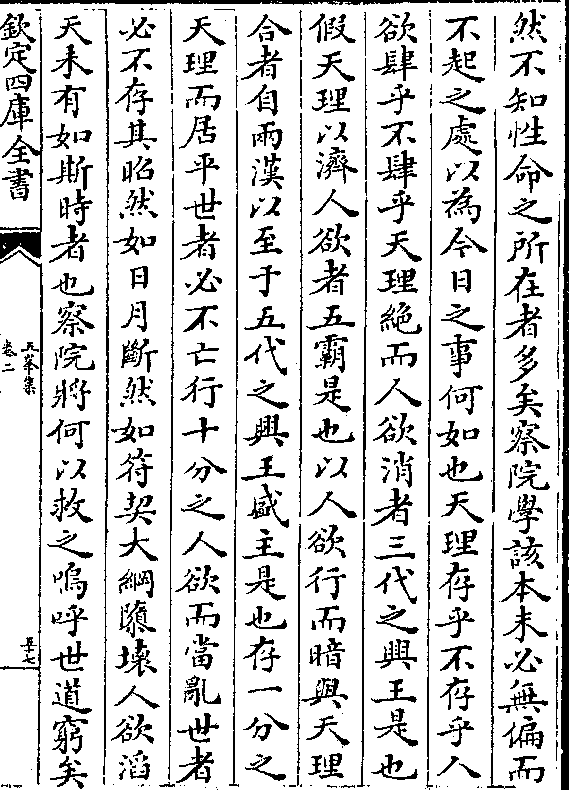 然不知性命之所在者多矣察院學該本末必無偏而
不起之處以為今日之事何如也天理存乎不存乎人
欲肆乎不肆乎天理絶而人欲消者三代之興王是也
假天理以濟人欲者五霸是也以人欲行而暗與天理
合者自兩漢以至于五代之興王盛主是也存一分之
天理而居平世者必不亡行十分之人欲而當亂世者
必不存其昭然如日月斷然如符契大綱隳壊人欲滔
天未有如斯時者也察院將何以救之嗚呼世道窮矣
欽定四庫全書
五峯集
卷二
五十七